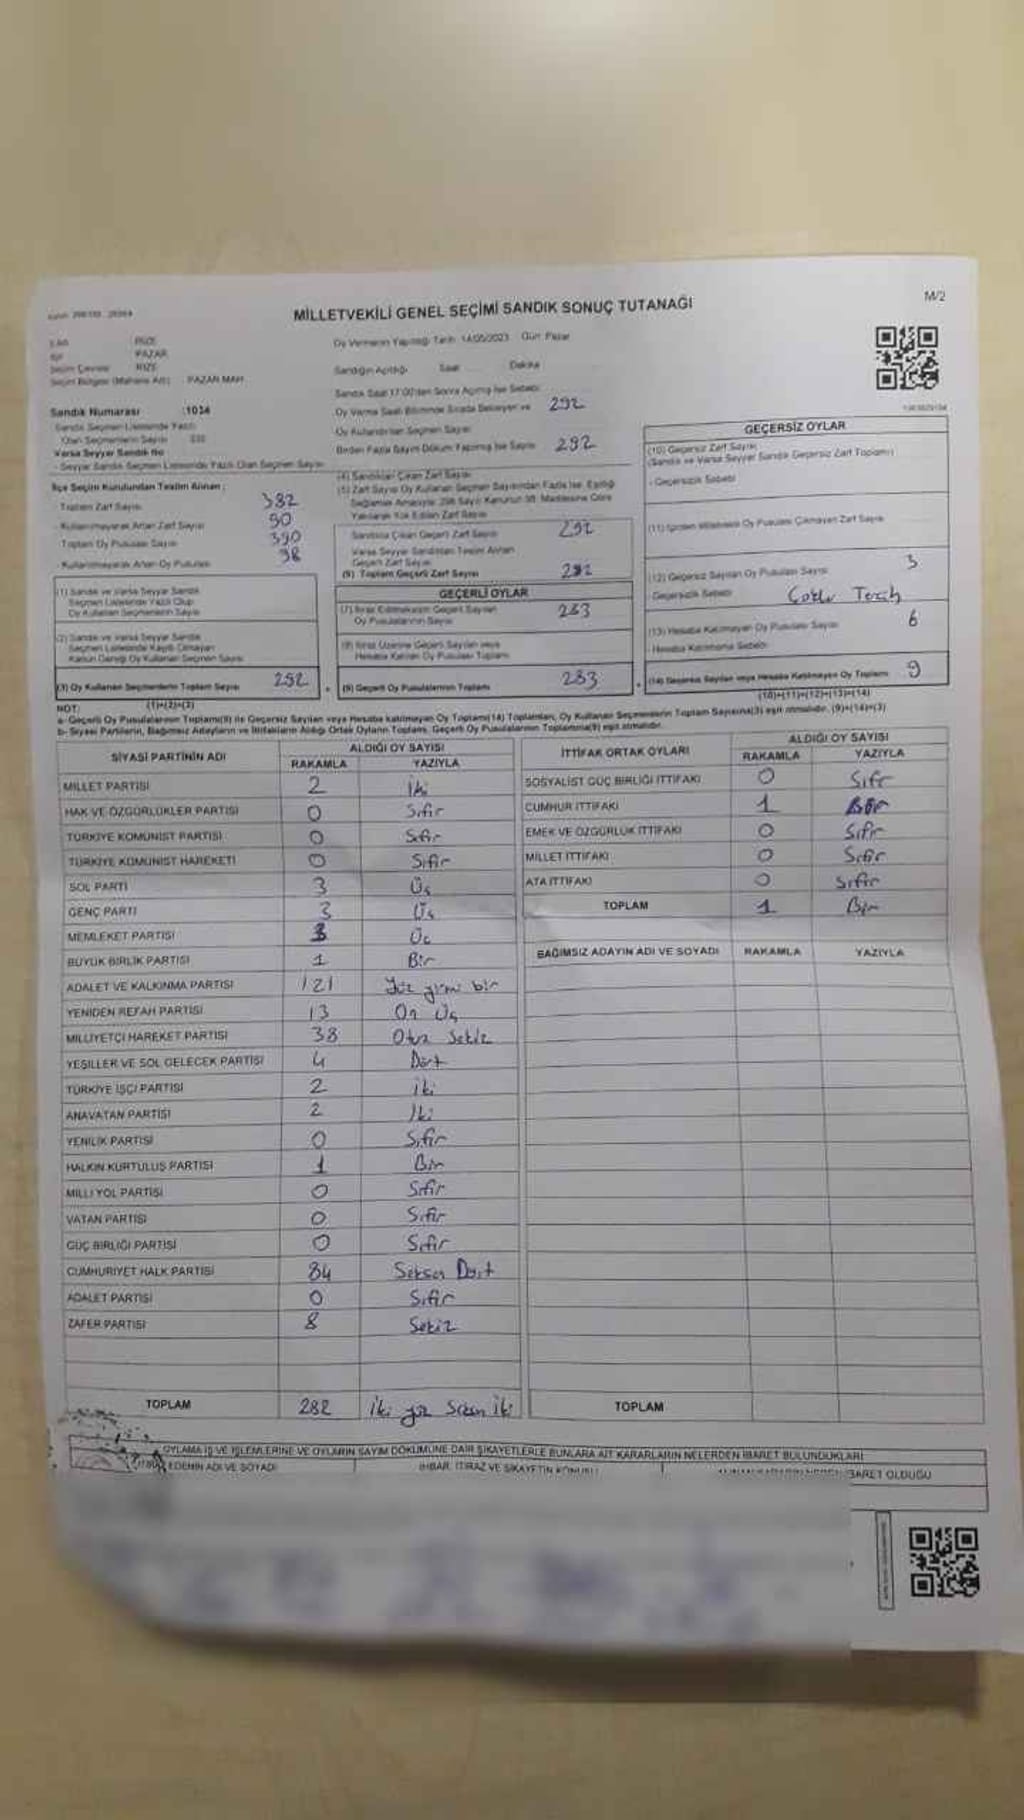 M/2
MİLLETVEKİLİ GENEL SEÇİMİ SANDIK SONUÇ TUTANAĞI
İli RİZE
PAZAR
Seçim Çevresi RİZE
Seçim Bölgesi (Mahalle Adı) PAZAR MAH
Sandık Numarası :1034
Sandık Seçmen Listesinde Yazılı
Olan Seçmenlerin Sayısı
Varsa Seyyar Sandık No
- Seyyar Sandık Seçmen Listesinde Yazılı Olan Seçmen Sayısı
İlçe Seçim Kurulundan Teslim Alınan :
- Toplam Zarf Sayısı 382
- Kullanılmayarak Artan Zarf Sayısı 90
Toplam Oy Pusulası Sayısı 390
- Kullanılmayarak Artan Oy Pusulası 98
(1) Sandık ve Varsa Seyyar Sandık
Seçmen Listesinde Yazılı Olup
Oy Kullanan Seçmenlerin Sayısı
(2) Sandık ve Varsa Seyyar Sandık
Seçmen Listesinde Kayıtlı Olmayan
Kanun Gereği Oy Kullanan Seçmen Sayısı
(3) Oy Kullanan Seçmenlerin Toplam Sayısı 292
(1)+(2)=(3)
Oy Vermenin Yapıldığı Tarih 14/05/2023 Gün: Pazar
Sandığın Açıldığı Saat Dakika
Sandık Saat 17:00'den Sonra Açılmış İse Sebebi
Oy Verme Saati Bitiminde Sırada Bekleyen ve 292
Oy Kullandırılan Seçmen Sayısı
Birden Fazla Sayım Döküm Yapılmış İse Sayısı 292
(4) Sandıktan Çıkan Zarf Sayısı
(5) Zarf Sayısı Oy Kullanan Seçmen Sayısından Fazla İse, Eşitliği
Sağlamak Amacıyla 298 Sayılı Kanunun 98. Maddesine Göre
Yakılarak Yok Edilen Zarf Sayısı
Sandıkta Çıkan Geçerli Zarf Sayısı 292
Varsa Seyyar Sandıktan Teslim Alınan
Geçerli Zarf Sayısı
(6) Toplam Geçerli Zarf Sayısı 292
GEÇERLİ OYLAR
(7) İtiraz Edilmeksizin Geçerli Sayılan
Oy Pusulalarının Sayısı 283
(8) İtiraz Üzerine Geçerli Sayılan veya
Hesaba Katılan Oy Pusulası Toplamı
(9) Geçerli Oy Pusulalarının Toplamı 283
GEÇERSİZ OYLAR
(10) Geçersiz Zarf Sayısı
(Sandık ve Varsa Seyyar Sandık Geçersiz Zarf Toplamı)
- Geçersizlik Sebebi
(11) İçinden Milletvekili Oy Pusulası Çıkmayan Zarf Sayısı
(12) Geçersiz Sayılan Oy Pusulası Sayısı 3
Geçersizlik Sebebi Çoklu Tercih
(13) Hesaba Katılmayan Oy Pusulası Sayısı 6
- Hesaba Katılmama Sebebi
(14) Geçersiz Sayılan veya Hesaba Katılmayan Oy Toplamı 9
(10)+(11)+(12)+(13)=(14)
NOT:
a- Geçerli Oy Pusulalarının Toplamı(9) ile Geçersiz Sayılan veya Hesaba katılmayan Oy Toplamı(14) Toplamları, Oy Kullanan Seçmenlerin Toplam Sayısına(3) eşit olmalıdır. (9)+(14)=(3)
b- Siyasi Partilerin, Bağımsız Adayların ve İttifakların Aldığı Ortak Oyların Toplamı, Geçerli Oy Pusulalarının Toplamına(9) eşit olmalıdır.
SİYASİ PARTİNİN ADI ALDIĞI OY SAYISI
RAKAMLA YAZIYLA
MİLLET PARTİSİ 2 İki
HAK VE ÖZGÜRLÜKLER PARTİSİ 0 Sıfır
TÜRKİYE KOMÜNİST PARTİSİ 0 Sıfır
TÜRKİYE KOMÜNİST HAREKETİ 0 Sıfır
SOL PARTİ 3 Üç
GENÇ PARTİ 3 Üç
MEMLEKET PARTİSİ 3 Üç
BÜYÜK BİRLİK PARTİSİ 1 Bir
ADALET VE KALKINMA PARTİSİ 121 Yüz yirmi bir
YENİDEN REFAH PARTİSİ 13 On Üç
MİLLİYETÇİ HAREKET PARTİSİ 38 Otuz Sekiz
YEŞİLLER VE SOL GELECEK PARTİSİ 4 Dört
TÜRKİYE İŞÇİ PARTİSİ 2 İki
ANAVATAN PARTİSİ 2 İki
YENİLİK PARTİSİ 0 Sıfır
HALKIN KURTULUŞ PARTİSİ 1 Bir
MİLLİ YOL PARTİSİ 0 Sıfır
VATAN PARTİSİ 0 Sıfır
GÜÇ BİRLİĞİ PARTİSİ 0 Sıfır
CUMHURİYET HALK PARTİSİ 84 Seksen Dört
ADALET PARTİSİ 0 Sıfır
ZAFER PARTİSİ 8 Sekiz
TOPLAM 282 İki yüz Seksen İki
İTTİFAK ORTAK OYLARI ALDIĞI OY SAYISI
RAKAMLA YAZIYLA
SOSYALİST GÜÇ BİRLİĞİ İTTİFAKI 0 Sıfır
CUMHUR İTTİFAKI 1 Bir
EMEK VE ÖZGÜRLÜK İTTİFAKI 0 Sıfır
MİLLET İTTİFAKI 0 Sıfır
ATA İTTİFAKI 0 Sıfır
TOPLAM 1 Bir
BAĞIMSIZ ADAYIN ADI VE SOYADI RAKAMLA YAZIYLA
TOPLAM
OYLAMA İŞ VE İŞLEMLERİNE VE OYLARIN SAYIM DÖKÜMÜNE DAİR ŞİKAYETLERLE BUNLARA AİT KARARLARIN NELERDEN İBARET BULUNDUKLARI
EDENİN ADI VE SOYADI İHBAR, İTİRAZ VE ŞİKAYETİN KONUSU İBARET OLDUĞU